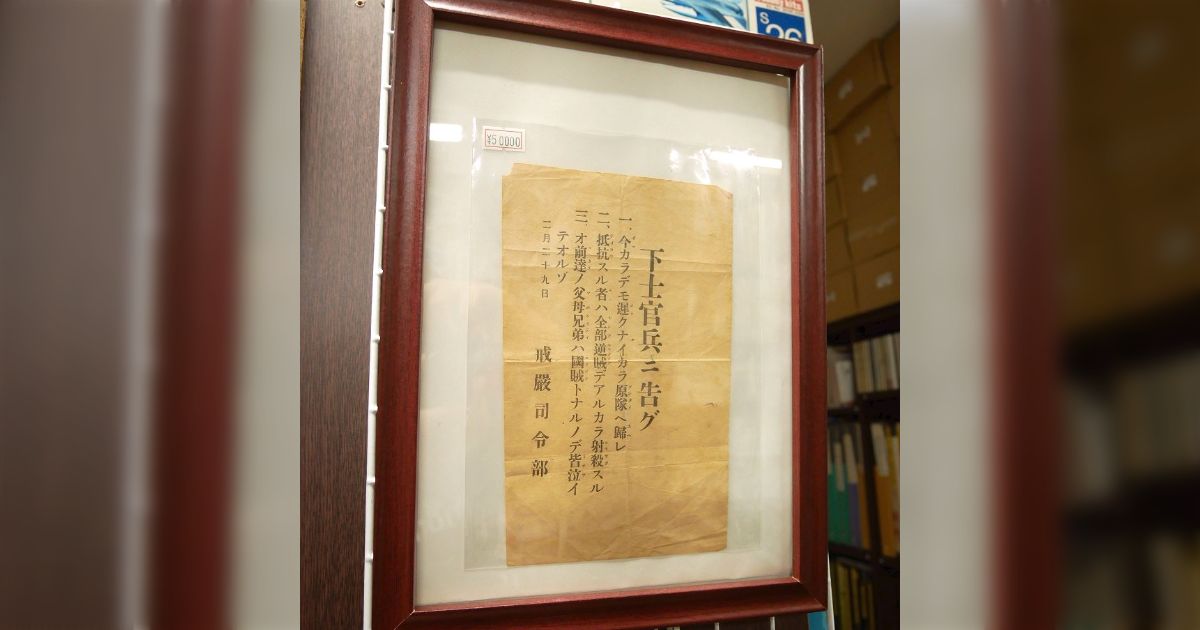 S
26
¥50000
下士官兵ニ告グ
一、今カラデモ遲クナイカラ原隊ヘ歸レ
二、抵抗スル者ハ全部逆賊デアルカラ射殺スル
三、オ前達ノ父母兄弟ハ國賊トナルノデ皆泣イ
テオルゾ
二月二十九日
戒嚴司令部